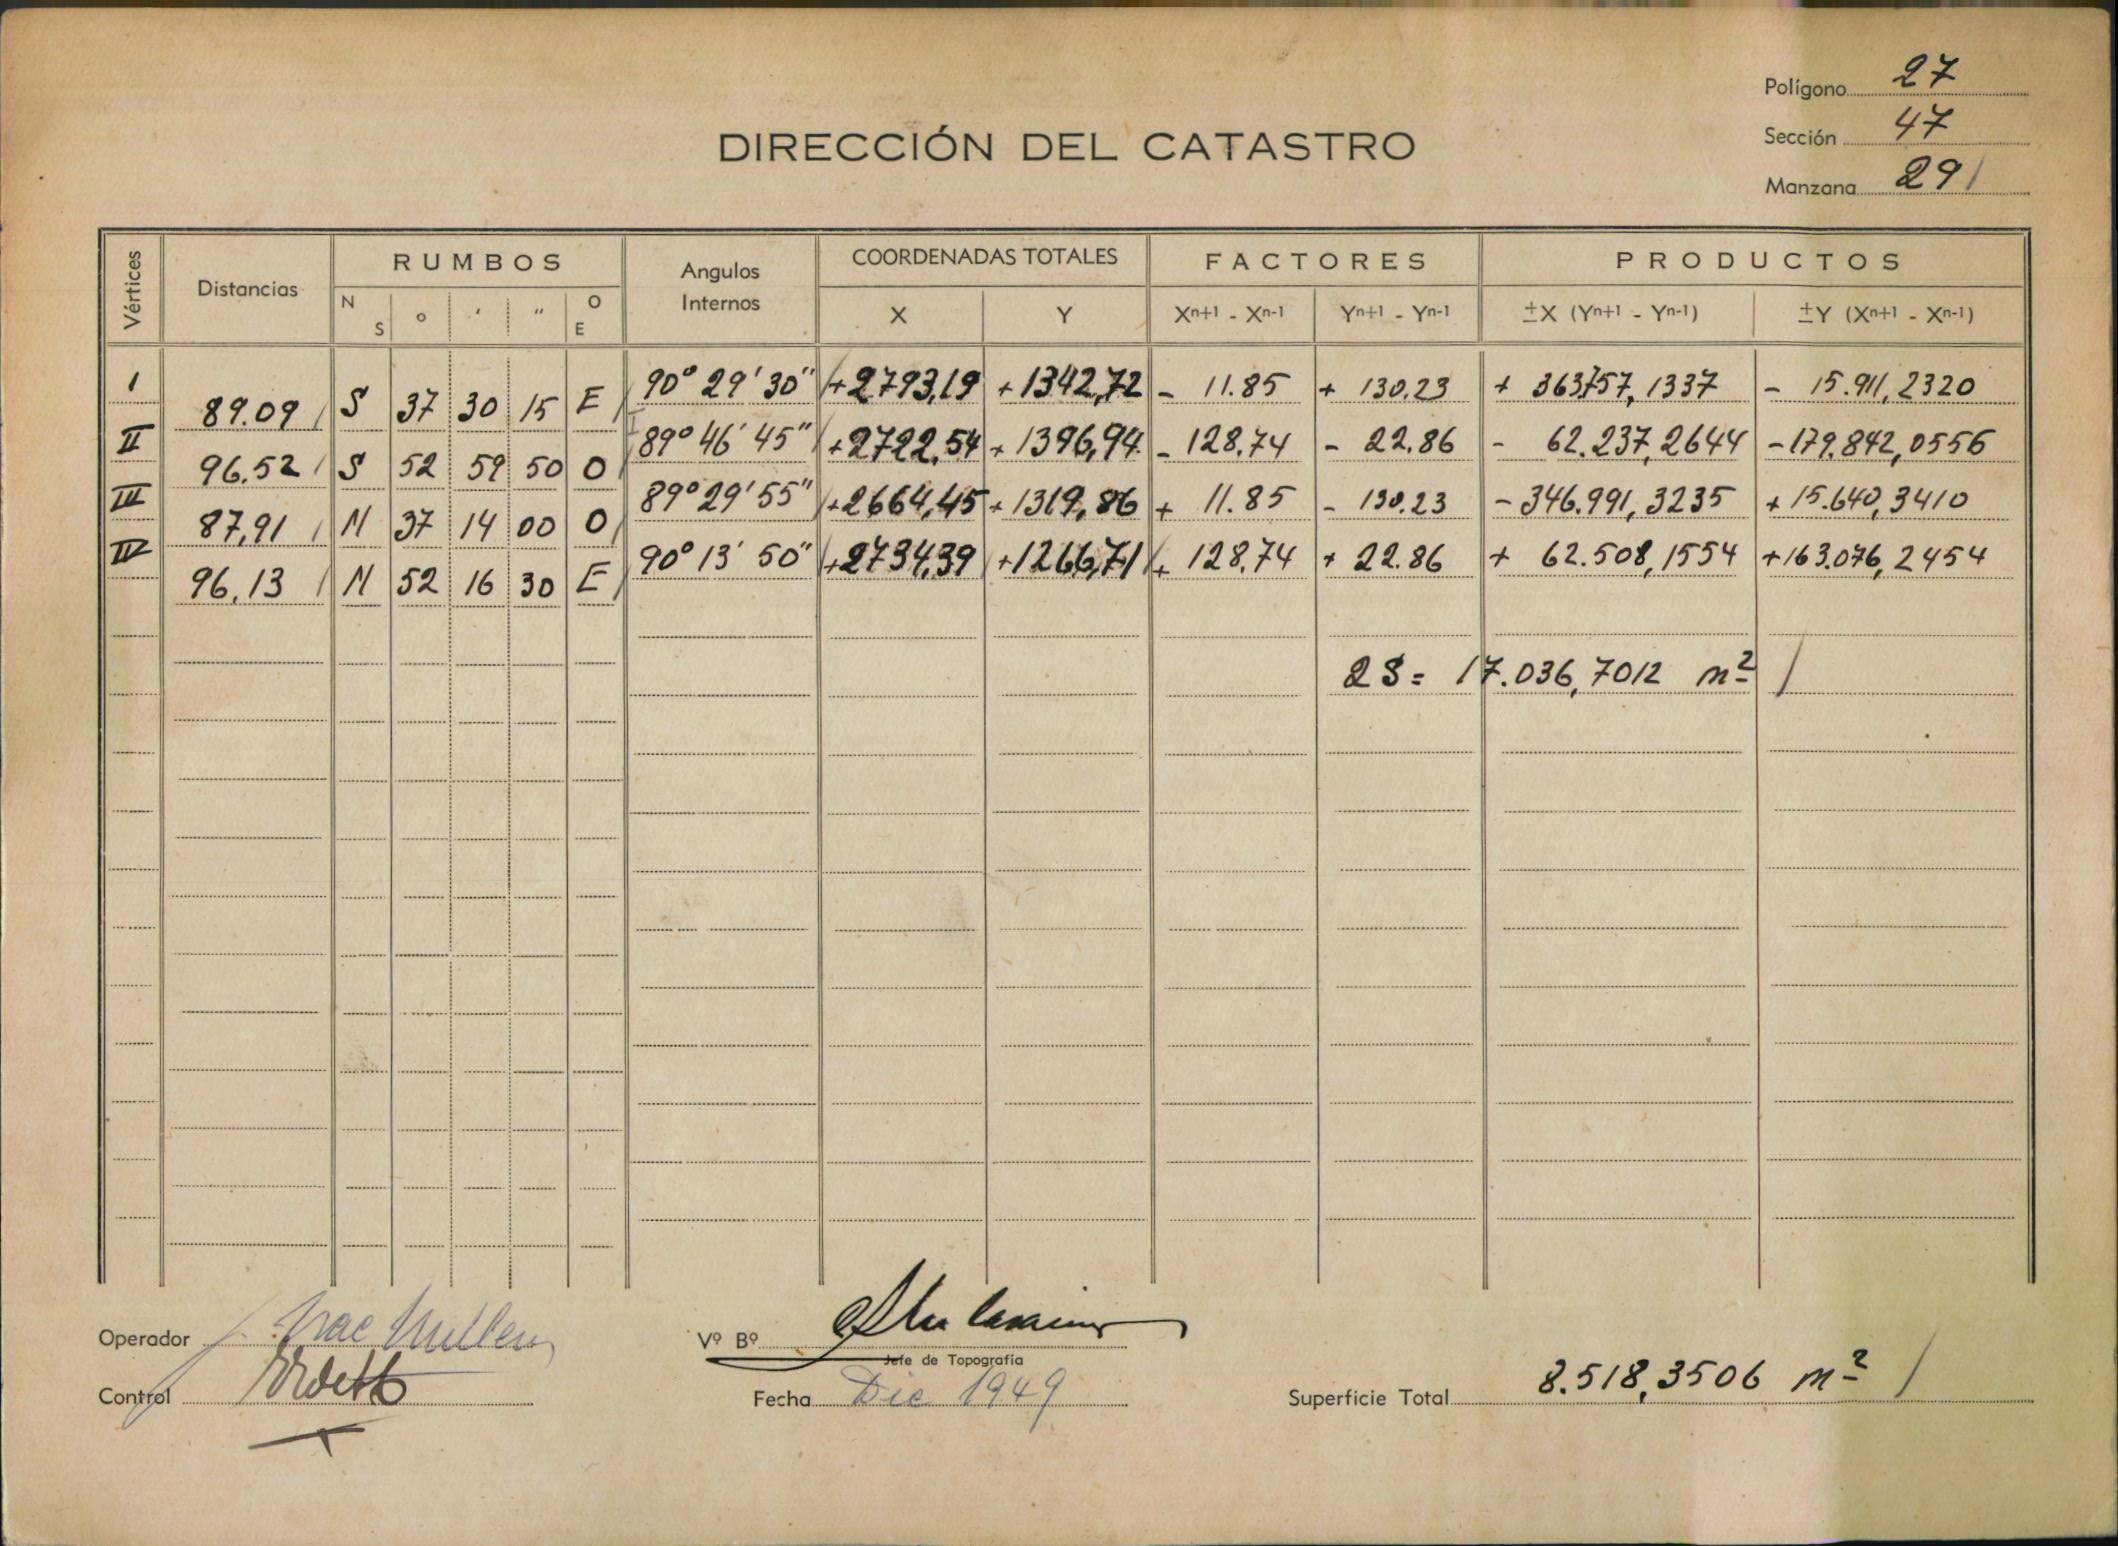 Polígono 27
DIRECCIÓN DEL CATASTRO
Sección 47
Manzana 29
Vértices Distancias RUMBOS Angulos Internos COORDENADAS TOTALES FACTORES PRODUCTOS
N S ° ' " O E X Y Xn+1 - Xn-1 Yn+1 - Yn-1 ±X (Yn+1 - Yn-1) ±Y (Xn+1 - Xn-1)
I 90° 29' 30" +2793,19 +1342,72 - 11.85 + 130.23 + 363757,1337 - 15.911,2320
89.09 S 37 30 15 E
II 89° 46' 45" +2722,54 +1396,94 - 128.74 - 22.86 - 62.237,2644 -179.842,0556
96.52 S 52 59 50 O
III 89° 29' 55" +2664,45 +1319,86 + 11.85 - 130.23 - 346.991,3235 + 15.640,3410
87,91 N 37 14 00 O
IV 90° 13' 50" +2734,39 +1266,71 + 128,74 + 22.86 + 62.508,1554 +163.076,2454
96,13 N 52 16 30 E
2S = 17.036,7012 m²
Operador
Vº Bº
Jefe de Topografía
Control
Fecha Dic 1949
Superficie Total 8.518,3506 m²